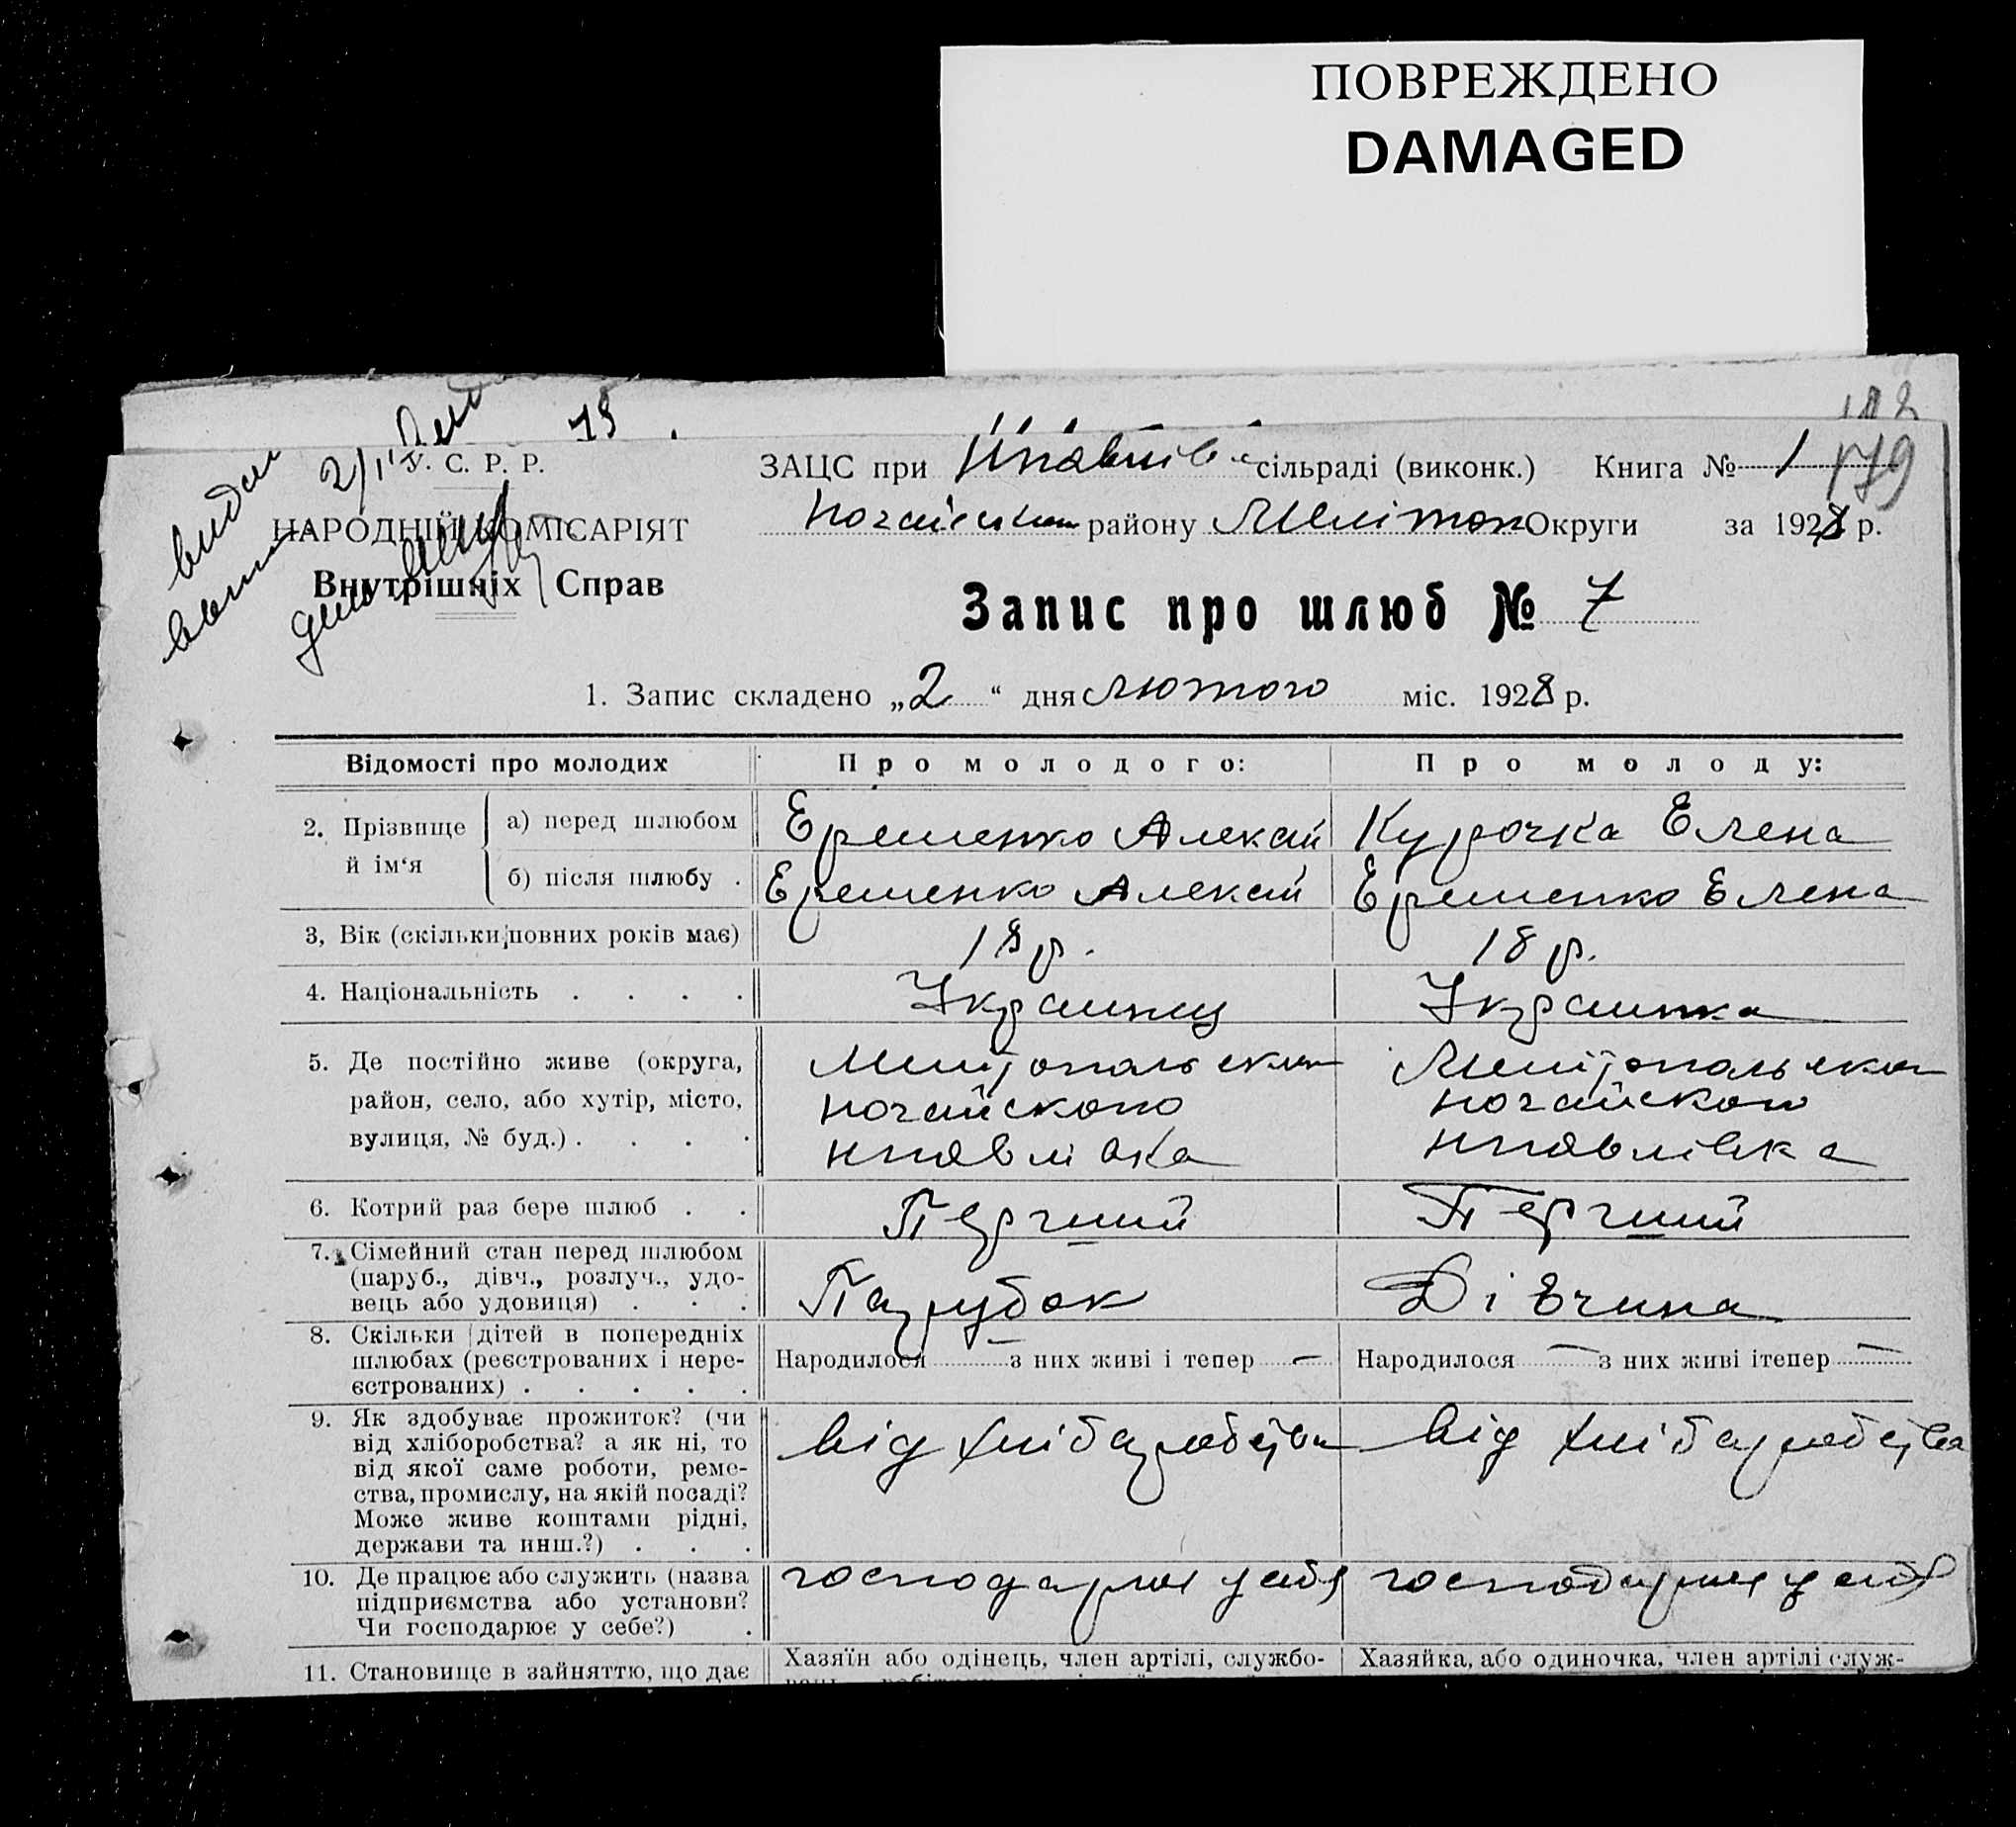 ПОВРЕЖДЕНО
DAMAGED
У. С. Р. Р.
НАРОДНІЙ КОМІСАРІЯТ
Внутрішніх Справ
ЗАЦС при сільраді (виконк.) Книга № 1 179
району Мелітоп Округи за 1928 р.
Запис про шлюб № 7
1. Запис складено „2“ дня лютого міс. 1928 р.
Відомості про молодих Про молодого: Про молоду:
2. Прізвище й ім‘я
а) перед шлюбом Еременко Алексій Курочка Елена
б) після шлюбу . Еременко Алексій Еременко Елена
3, Вік (скільки повних років має) 18 р. 18 р.
4. Національність . . . . Украинец Украинка
5. Де постійно живе (округа,
район, село, або хутір, місто,
вулиця, № буд.) . . . .
Ногайского
Ногайского
6. Котрий раз бере шлюб . . Перший Перший
7. Сімейний стан перед шлюбом
(паруб., дівч., розлуч., удо-
вець або удовиця) . . .
Парубок Дівчина
8. Скільки дітей в попередніх
шлюбах (реєстрованих і нере-
єстрованих) . . . . .
Народилося — з них живі і тепер — Народилося — з них живі ітепер —
9. Як здобуває прожиток? (чи
від хліборобства? а як ні, то
від якої саме роботи, реме-
ства, промислу, на якій посаді?
Може живе коштами рідні,
держави та инш.?) . . .
від хліборобства від хліборобства
10. Де працює або служить (назва
підприємства або установи?
Чи господарює у себе?) .
господарює у себя господарює у себя
11. Становище в зайняттю, що дає Хазяїн або одінець, член артілі, службо- Хазяйка, або одиночка, член артілі служ-